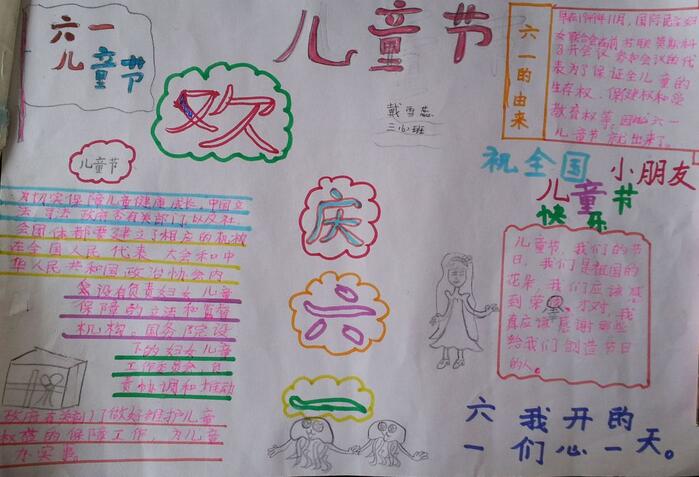 六一
儿童节
儿童节
欢
庆
六
一
戴雪蕊
三(6)班
六一的由来
早在1949年11月,国际民主妇
女联合会在前苏联莫斯科
召开会议,参加会议的代
表为了保证全儿童的
生存权、保健权和受
教育权等,因此六一
儿童节就出来了。
祝全国小朋友
儿童节
快乐
儿童节
为切实保障儿童健康成长,中国立
法、司法、政府各有关部门,以及社
会团体都要建立了相应的机械
在全国人民代表大会和中
华人民共和国政治协会内
会设有负责妇女儿童
保障的立法和监督
机构。国务院设
下的妇女儿童
工作委员会,负
责协调和推动
政府有关部门做好维护儿童
权益的保障工作,为儿童
办实事。
儿童节,我们的节
日,我们是祖国的
花朵,我们应该感
到荣 才对,我
真应该感谢那些
给我们创造节日
的人。
六我开的
一们心一天。